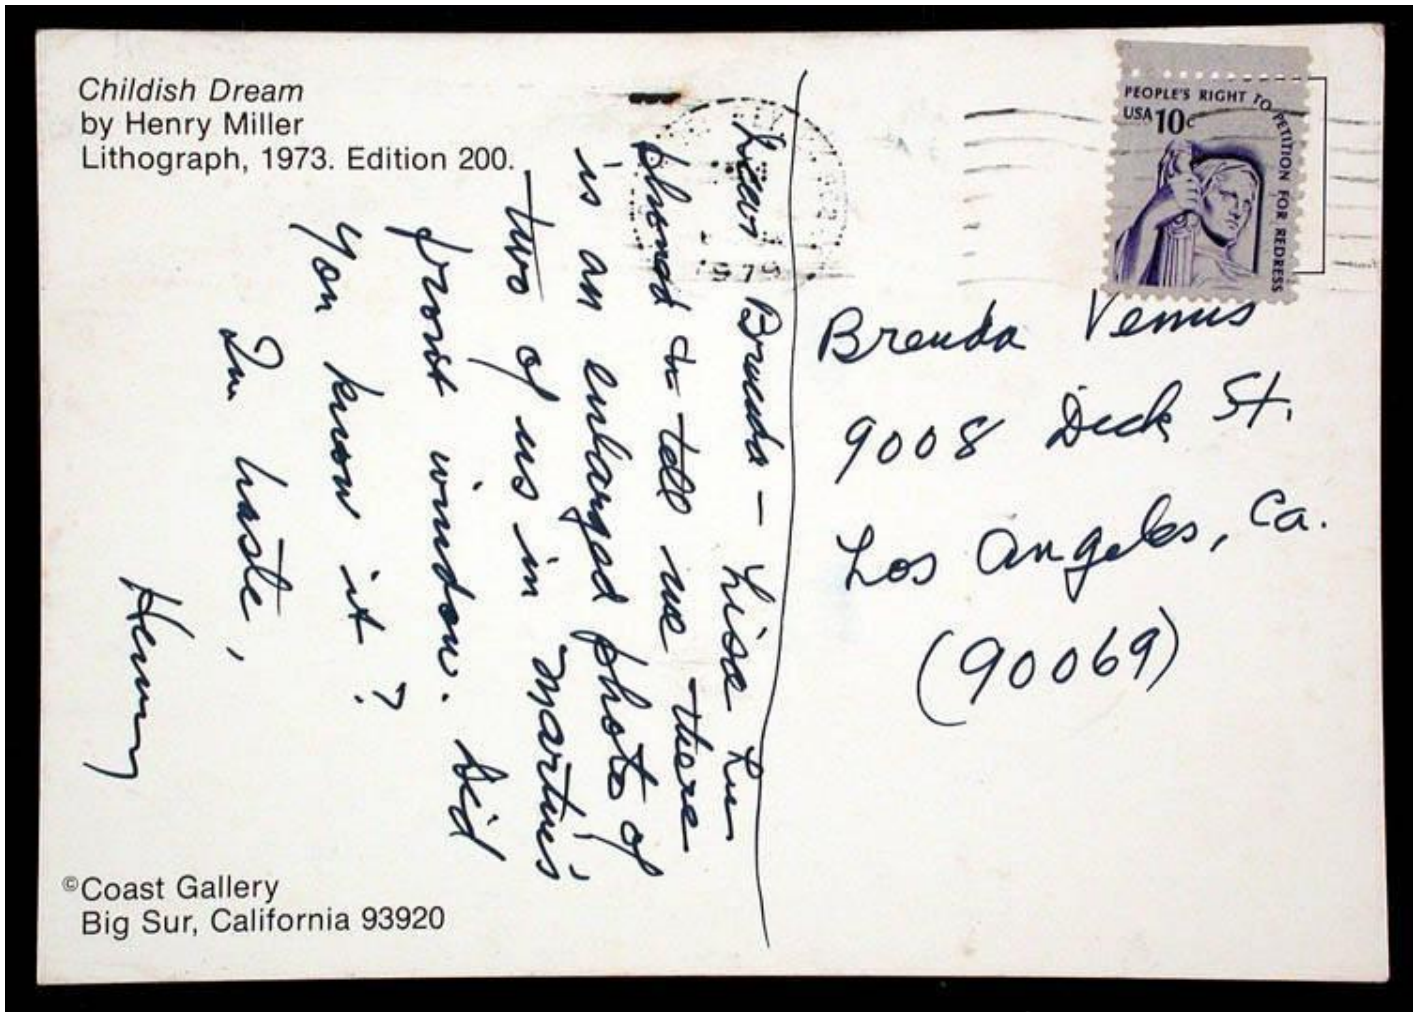 Childish Dream
by Henry Miller
Lithograph, 1973. Edition 200.
Dear Brenda – Lisa Lu
phoned to tell me there
is an enlarged photo of
two of us in Martin's
front window. Did
you know it?
In haste,
Henry
©Coast Gallery
Big Sur, California 93920
PEOPLE'S RIGHT TO PETITION FOR REDRESS
USA 10c
1979
Brenda Venus
9008 Dick St.
Los Angeles, Ca.
(90069)